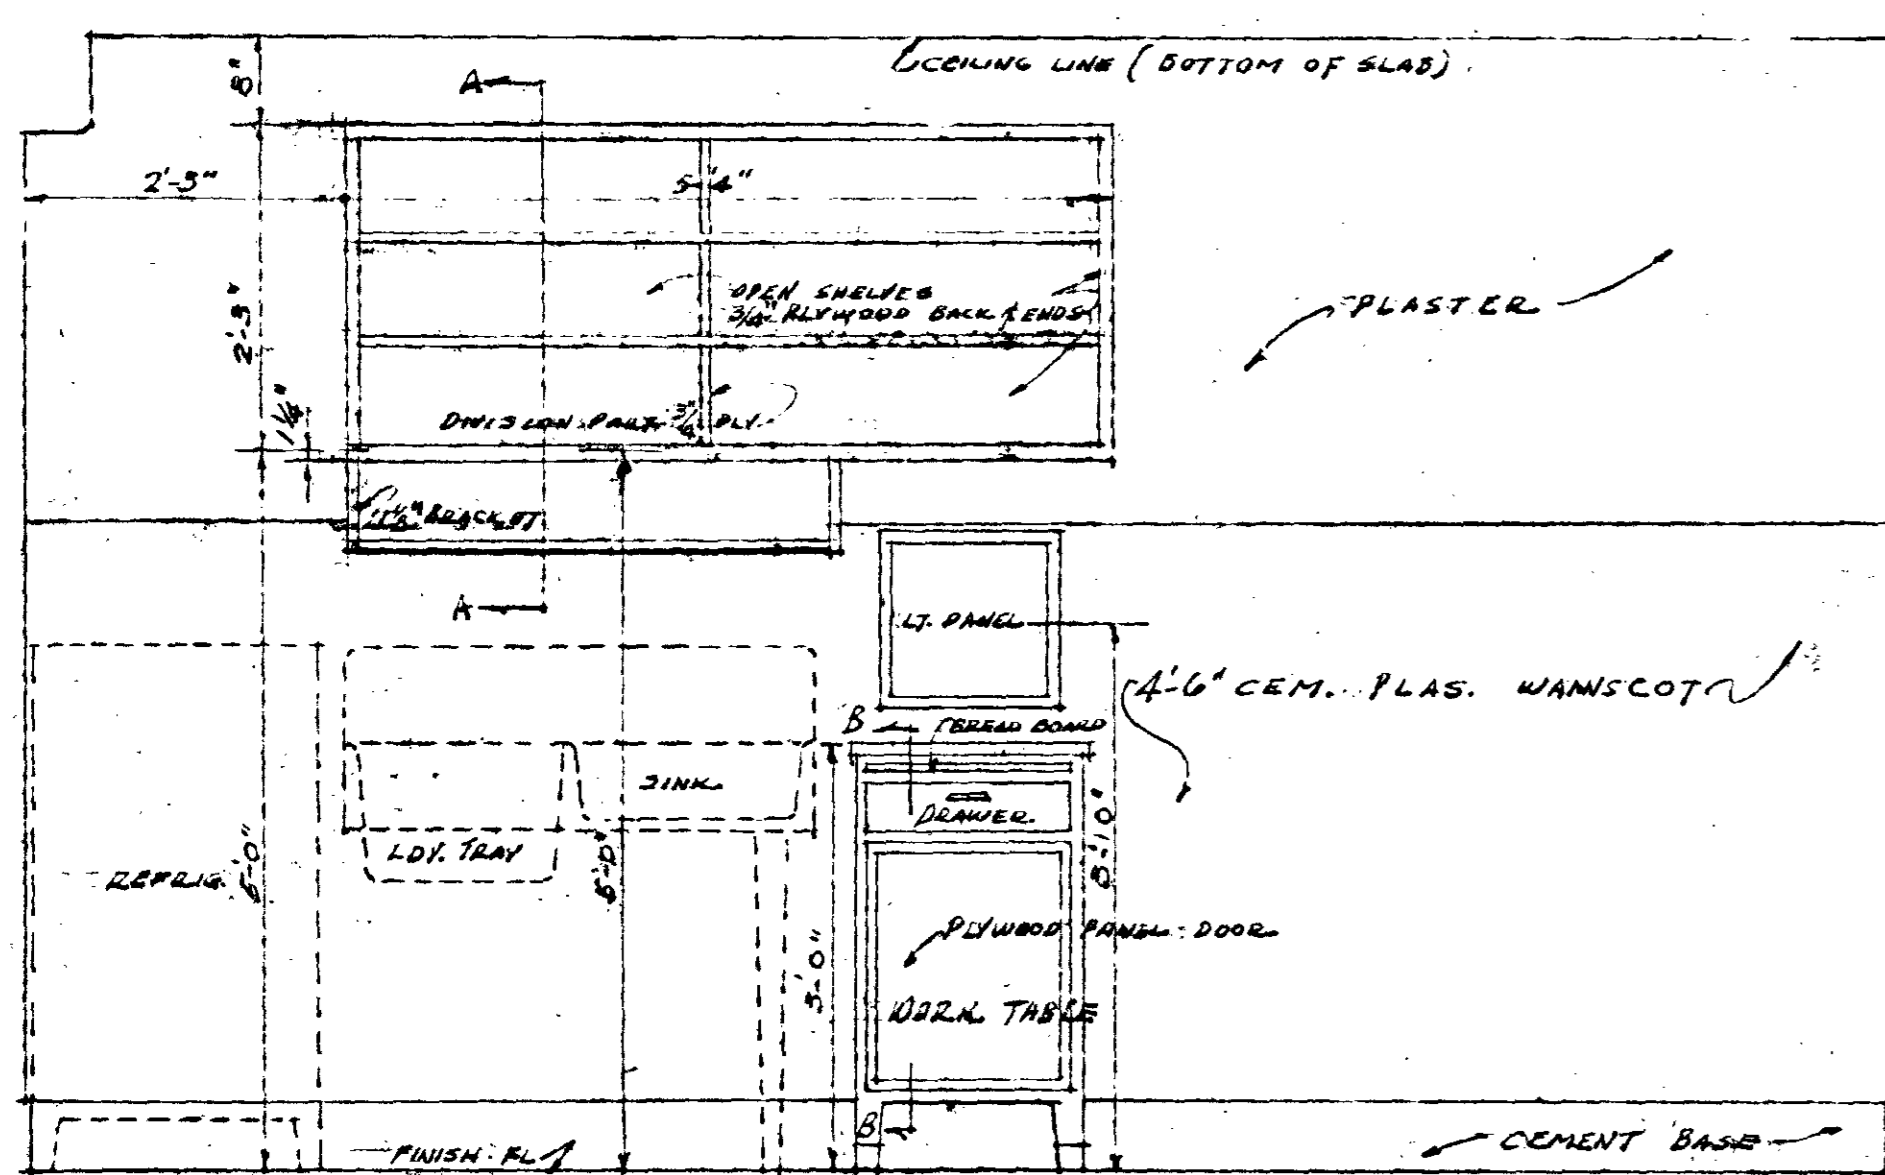 CEILING LINE (BOTTOM OF SLAB).
8"
A
2'-3"
5'-4"
OPEN SHELVES
3/4" PLYWOOD BACK & ENDS
PLASTER
2'-3"
1 1/4"
DIVISION PART. 3/4" PLY.
1 1/8" BRACKET
A
LT. PANEL
4'-6" CEM. PLAS. WAINSCOT
B
BREAD BOARD
SINK
DRAWER
LDY. TRAY
REFRIG.
5'-0"
3'-10"
PLYWOOD PANEL DOOR
3'-0"
WORK TABLE
B
FINISH FL
CEMENT BASE